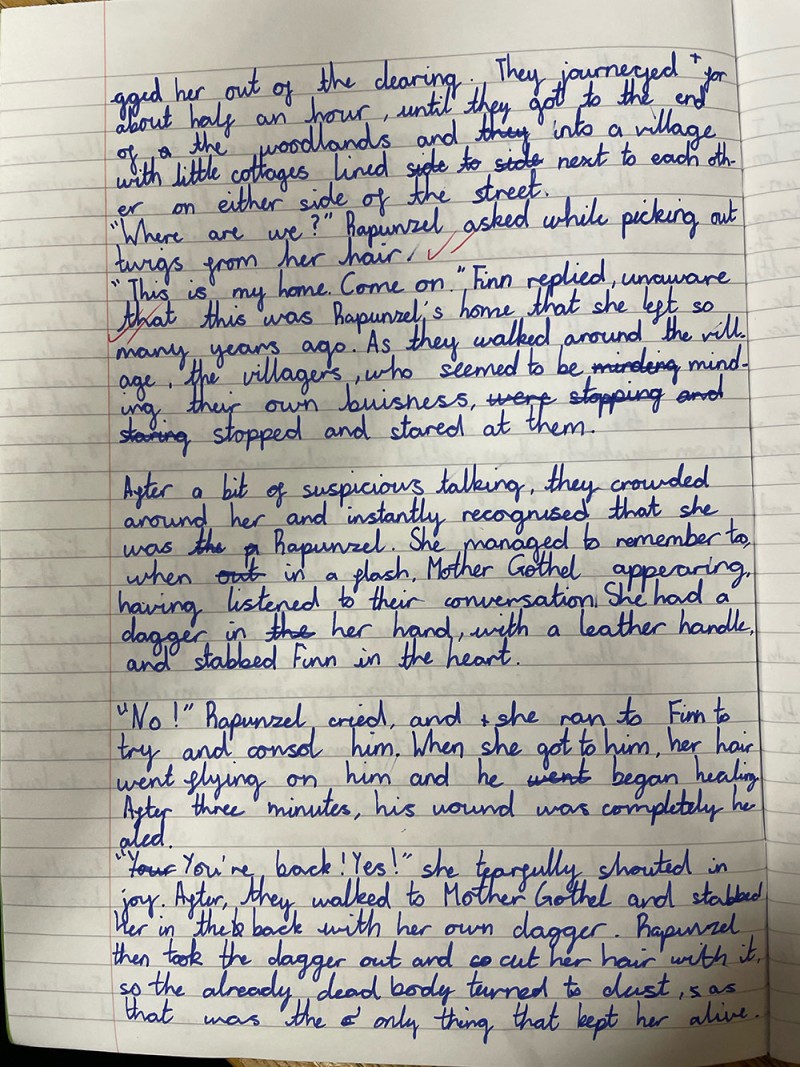 gged her out of the clearing. They journeyed + for
about half an hour, until they got to the end
of a the woodlands and they into a village
with little cottages lined side to side next to each oth-
er on either side of the street.
"Where are we?" Rapunzel asked while picking out
twigs from her hair.
"This is my home. Come on." Finn replied, unaware
that this was Rapunzel's home that she left so
many years ago. As they walked around the vill-
age, the villagers, who seemed to be minding mind-
ing their own buisness, were stopping and
staring stopped and stared at them.
After a bit of suspicious talking, they crowded
around her and instantly recognised that she
was the p Rapunzel. She managed to remember to,
when out in a flash, Mother Gothel appearing,
having listened to their conversation. She had a
dagger in the her hand, with a leather handle,
and stabbed Finn in the heart.
"No!" Rapunzel cried, and + she ran to Finn to
try and consol him. When she got to him, her hair
went flying on him and he went began healing.
After three minutes, his wound was completely he
aled.
"Your You're back! Yes!" she tearfully shouted in
joy. After, they walked to Mother Gothel and stabbed
her in the b back with her own dagger. Rapunzel
then took the dagger out and co cut her hair with it,
so the already dead body turned to dust, s as
that was the o only thing that kept her alive.